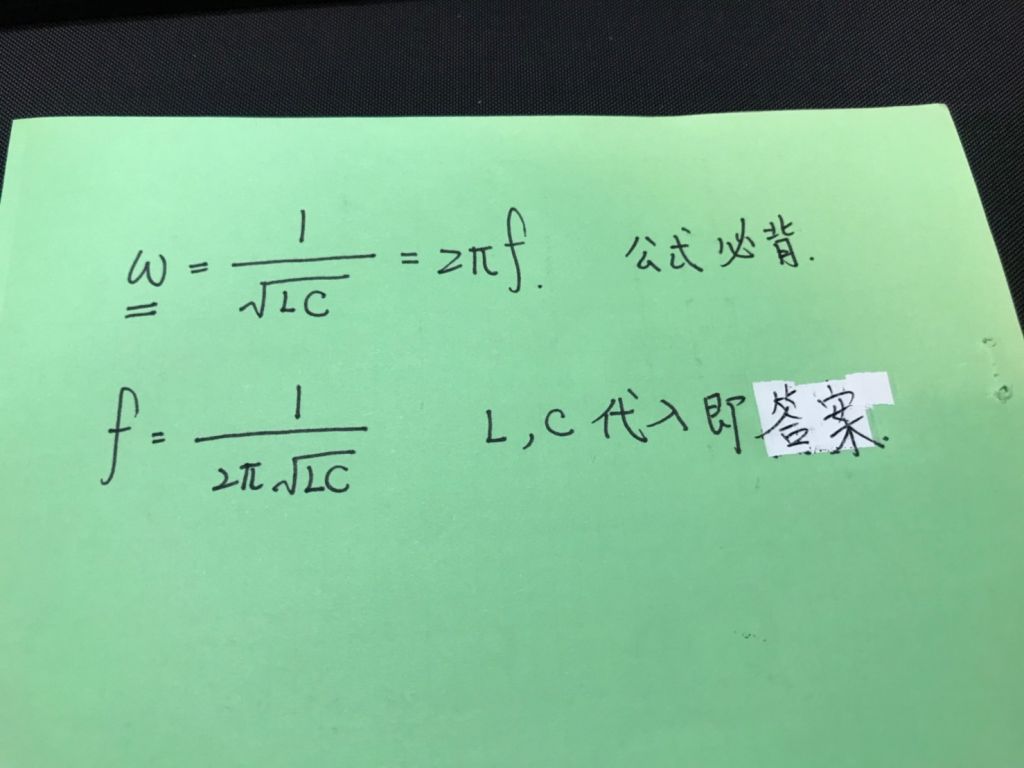 ω = 1/√LC = 2πf. 公式必背.
f = 1/2π√LC L,C代入即答案.